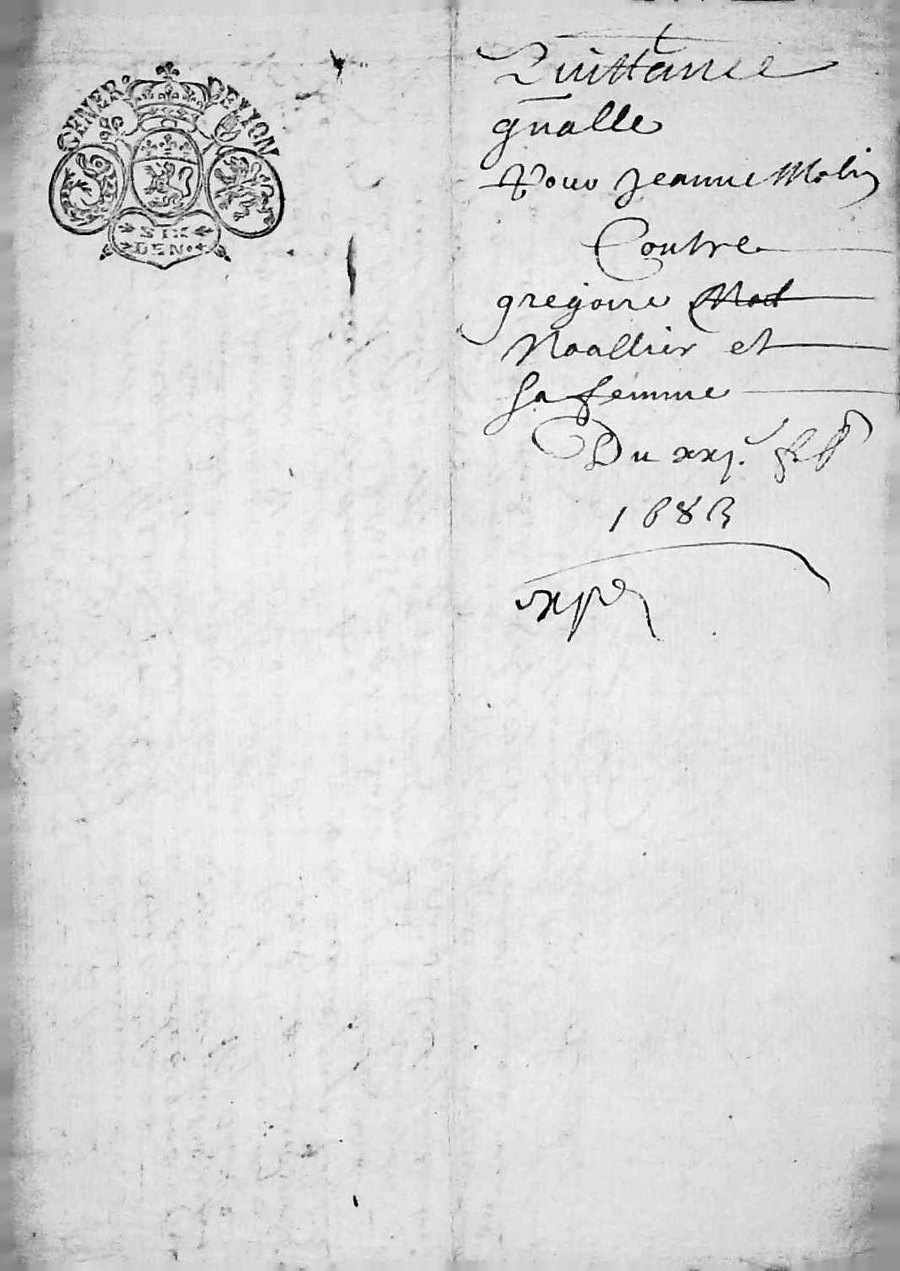 GENER. DE LYON
SIX
DEN.
Quittance
gnalle
Pour Jeanne Molin
Contre
gregoire Noal
Noallier et
sa femme
Du xxj. feb
1683
expé